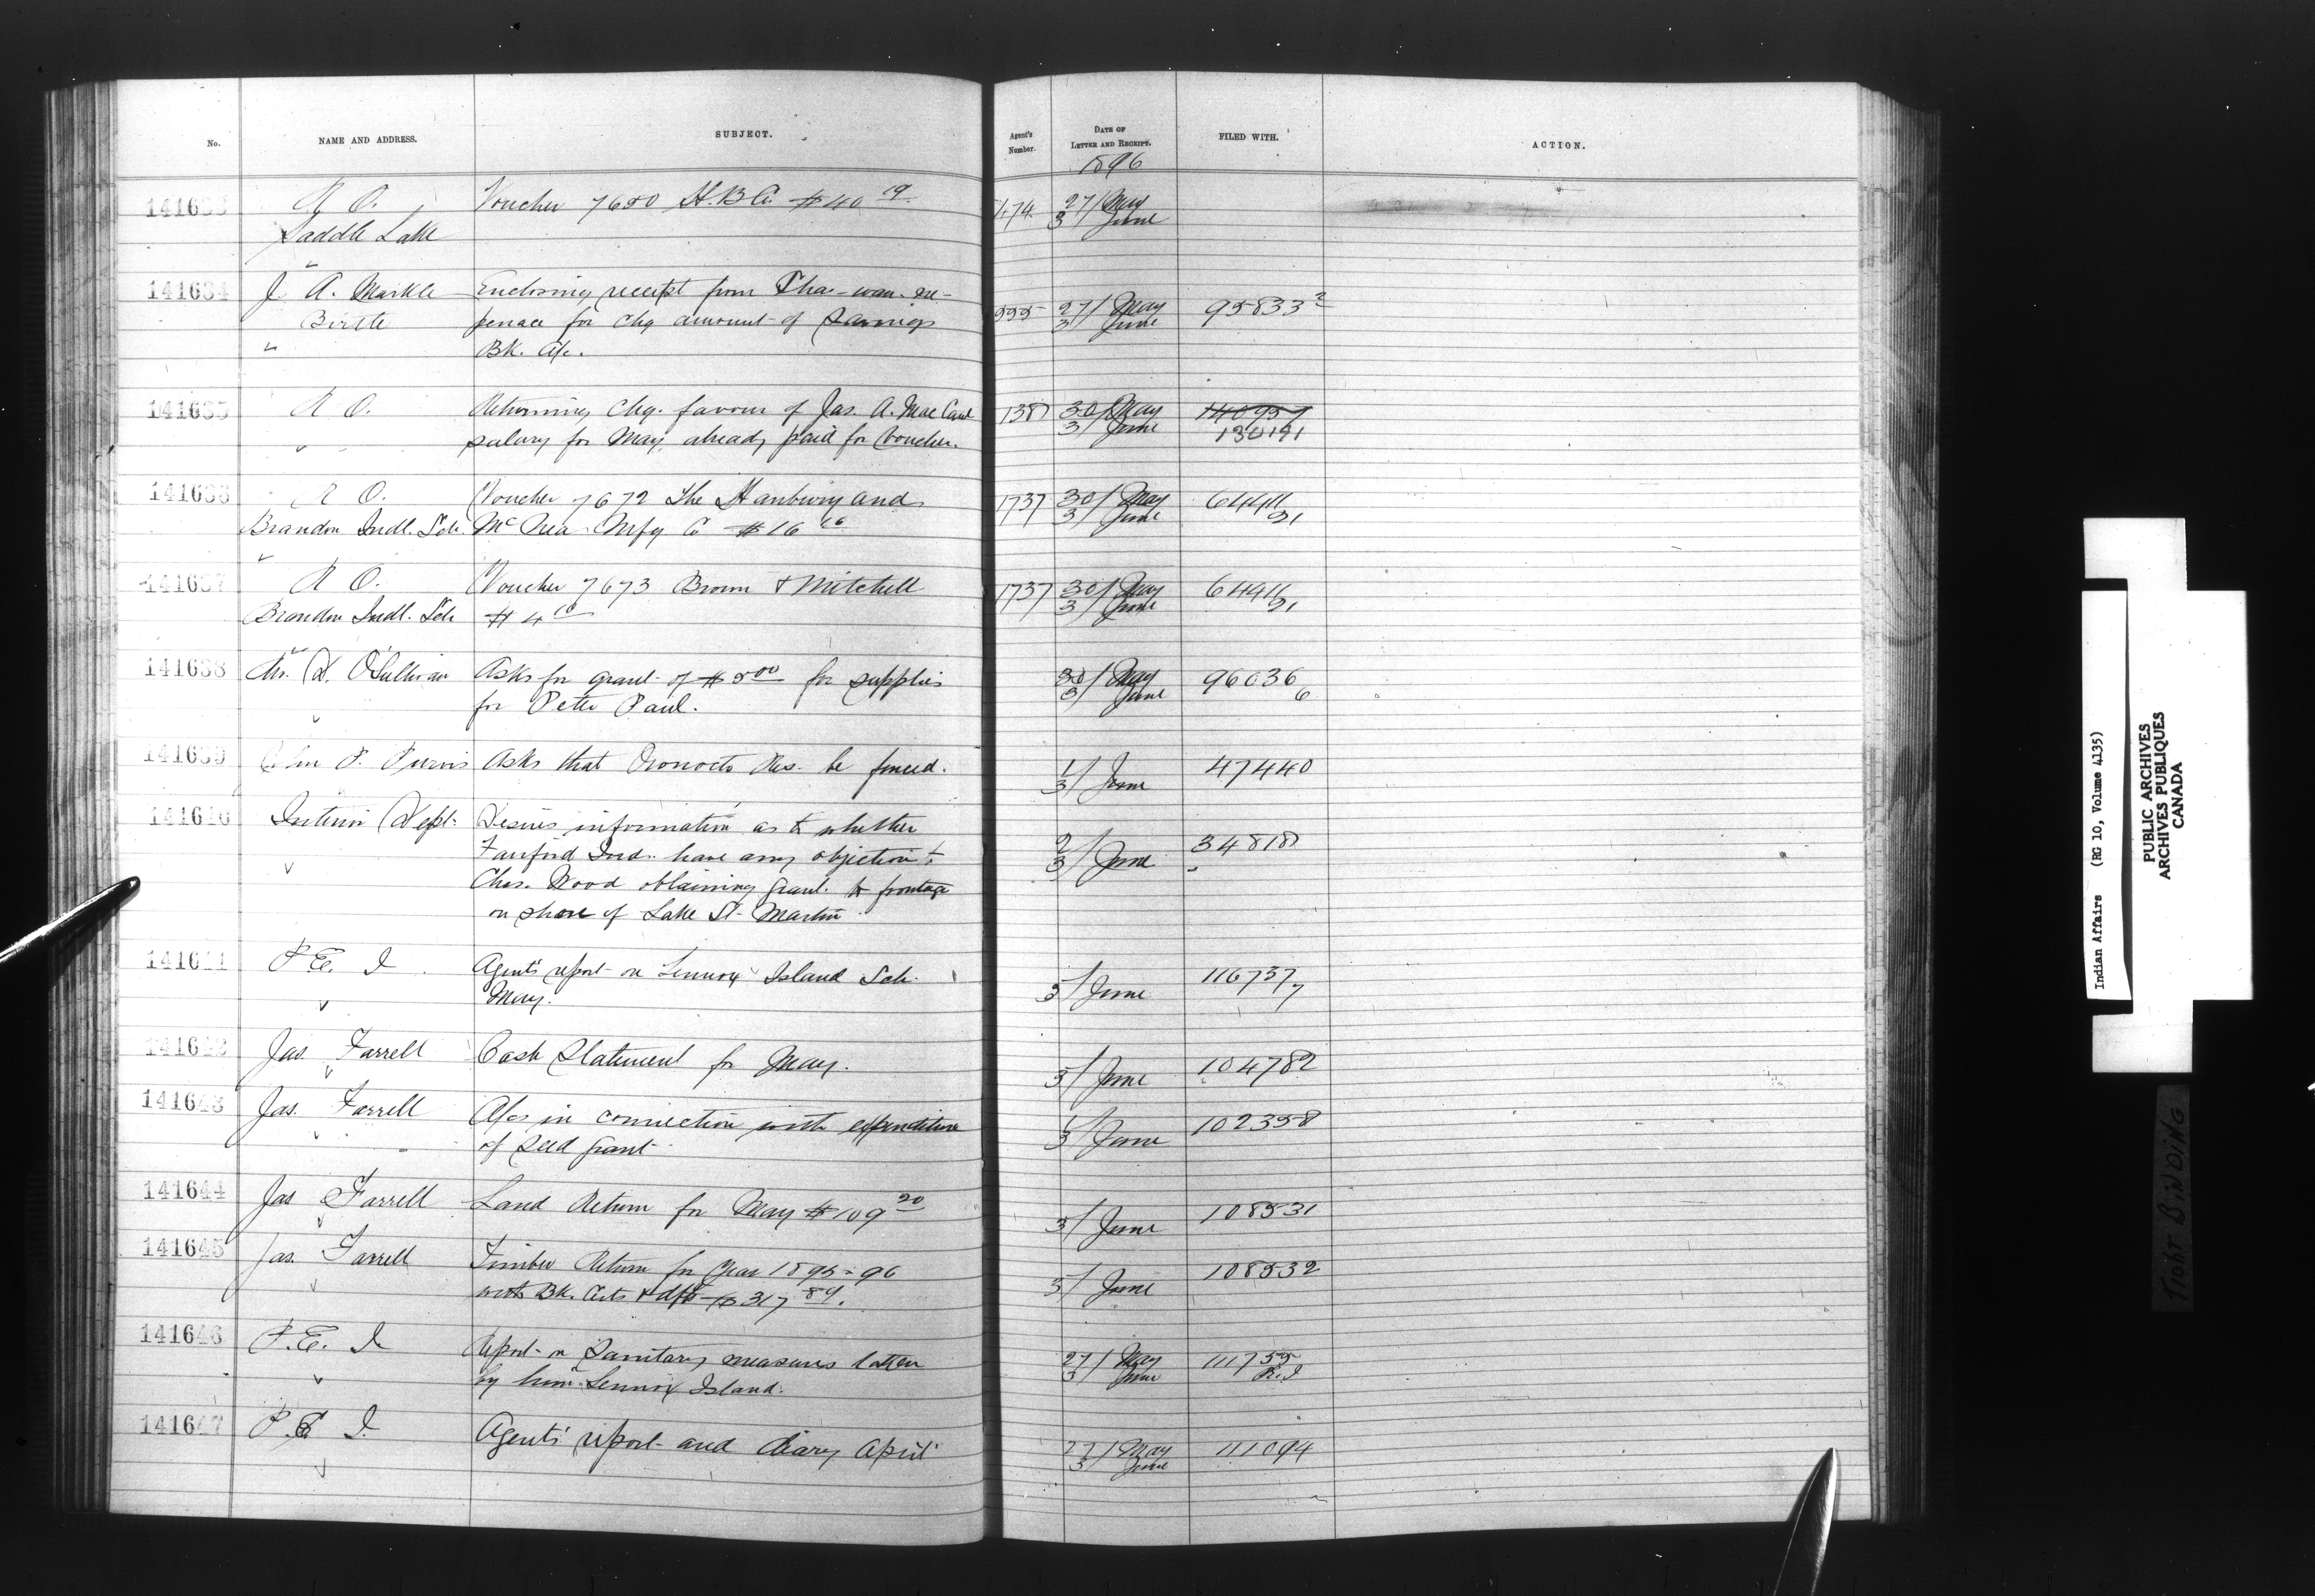 No. NAME AND ADDRESS. SUBJECT. Agent's Number. DATE OF LETTER AND RECEIPT. FILED WITH. ACTION.
1896
141633 R O. Voucher 7680 H.B.Co. $40 19 474 27/ May
Saddle Lake 3 June
141634 J. A. Markle Enclosing receipt from 555 27/ May 95833 2
Birtle for chq amount of Savings 3 June
Bk. A/c.
141635 R O. Returning chq. favour of Jas. A. Mac 1387 30/ May 140957
salary for May, already paid for Voucher. 3/ June 130191
141636 R O. Voucher 7672 The Hanbury and 1737 30/ May 64411
Brandon Indl. Sch. McRea Mfg Co $16 3/ June 21
141637 R O. Voucher 7673 Brown & Mitchell 1737 30/ May 64411
Brandon Indl. Sch $4 10 3/ June 21
141638 D. O'Sullivan Asks for grant of $5 00 for supplies 30/ May 96036
for Peter Paul. 3/ June 6
141639 P. Purvis Asks that Oromocto Res. be fenced. 1/ 3/ June 47440
141640 Interior Dept. Desires information as to whether 2/ 34818
Fairford Inds. have any objection to 3/ June
Chas. Wood obtaining grant to frontage
on shore of Lake St. Martin.
141641 P. E. I. Agent's report on Lennox Island Sch. 116737
May. 3/ June 7
141642 Jas. Farrell Cash Statement for May. 3/ June 104782
141643 Jas. Farrell A/cs in connection with expenditure 1/ 102358
of seed grant 3/ June
141644 Jas Farrell Land Return for May $109 20 3/ June 108531
141645 Jas. Farrell Timber Return for Year 1895-96 108532
with Bk. & dft $317 89. 3/ June
141646 P. E. I. Report on Sanitary measures taken 27/ May 111755
by him Lennox Island. 3 June R.I
141647 P. E. I. Agents' report and diary April 27/ May 111094
3/ June
Indian Affairs (RG 10, Volume 4135)
PUBLIC ARCHIVES
ARCHIVES PUBLIQUES
CANADA
TIGHT BINDING